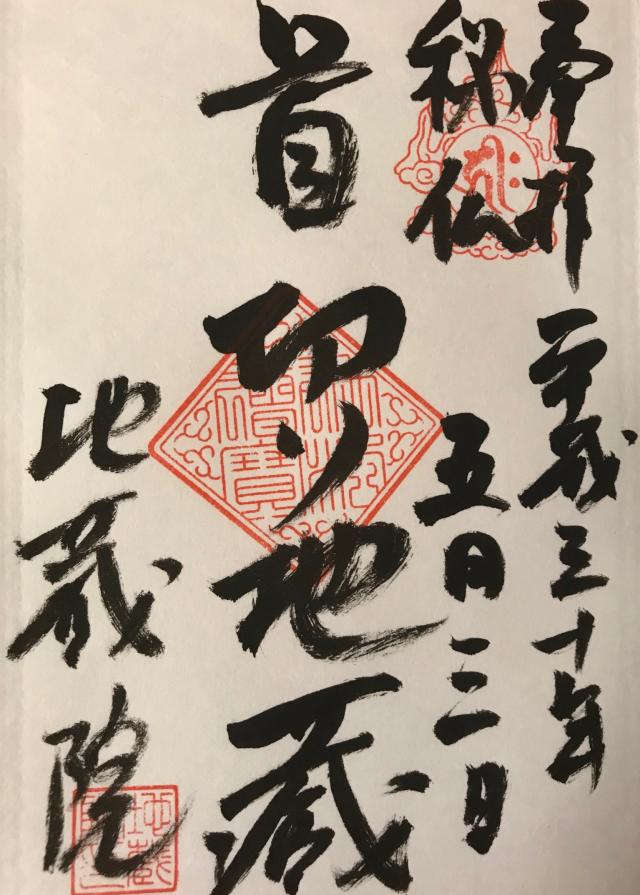 奉拝 平成三十年
秘仏 五月三日
首切り地蔵
地蔵院